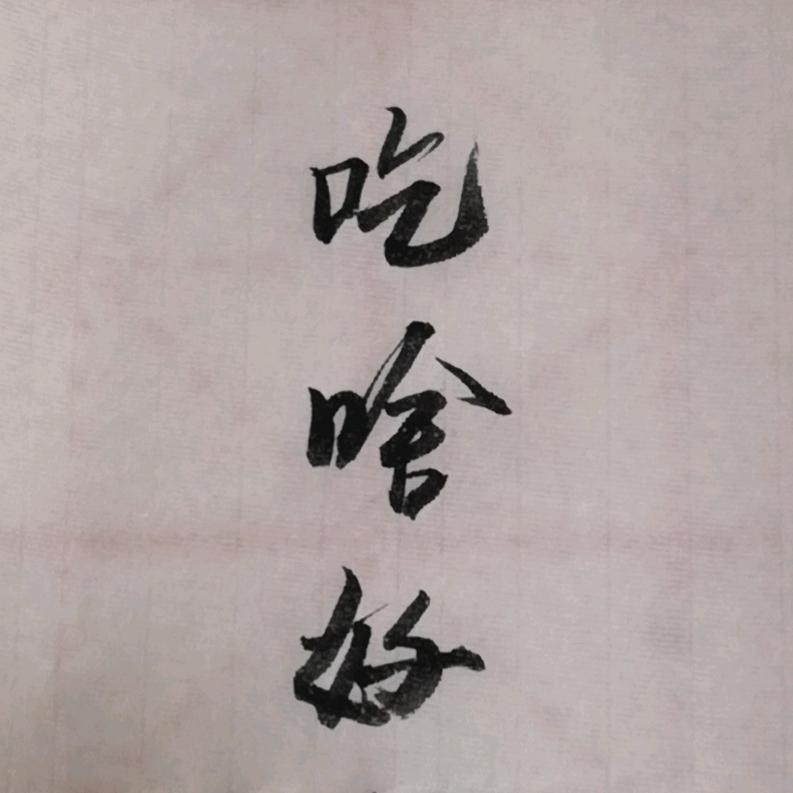 吃啥好